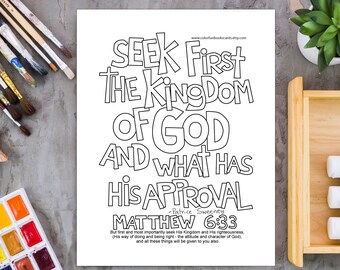 www.colorfuldoodlecards.etsy.com
SEEK FIRST
THE KINGDOM
OF GOD
AND WHAT HAS
HIS APPROVAL
-Patrice Sweeney
MATTHEW 6:33
But first and most importantly seek His Kingdom and His righteousness,
(His way of doing and being right - the attitude and character of God),
and all these things will be given to you also.